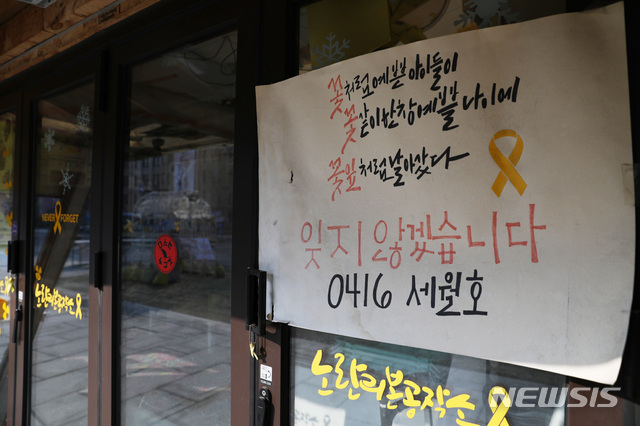 꽃처럼 예쁜 아이들이
꽃같이 한창 예쁠 나이에
꽃잎처럼 날아갔다
잊지 않겠습니다
0416 세월호
NEVER FORGET
노란리본공작소
노란리본공작소
NEWSIS